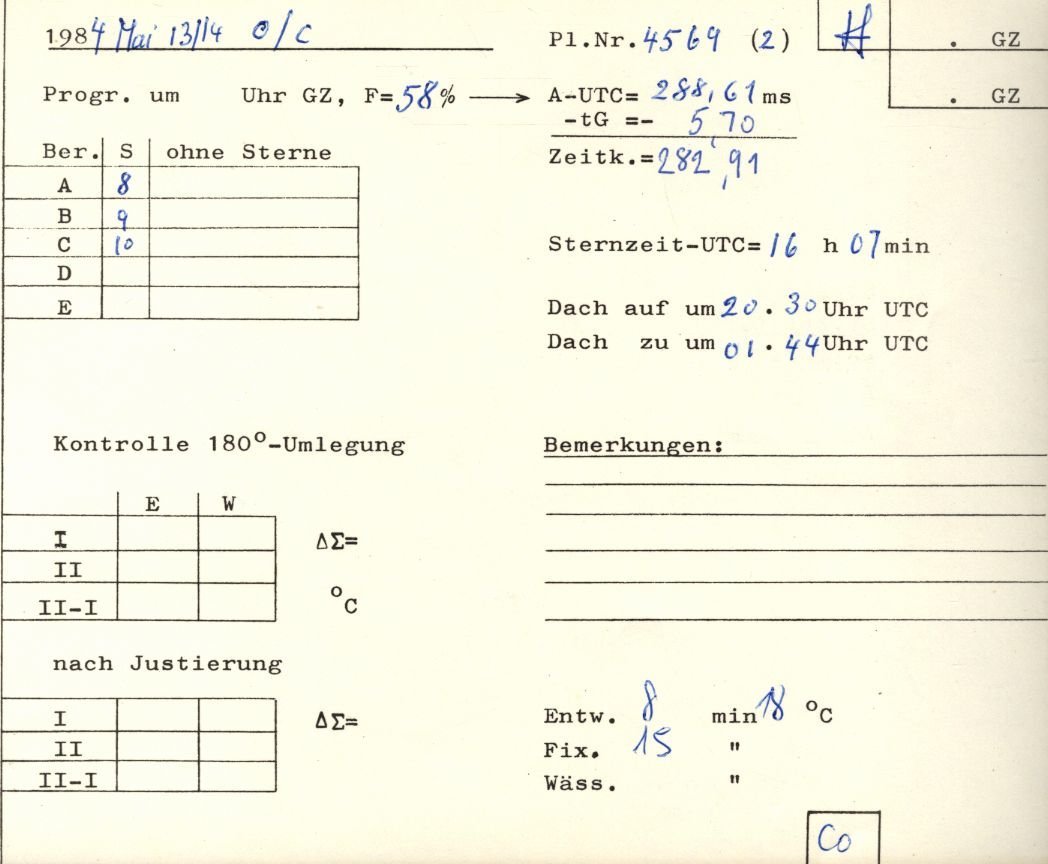 1984 Mai 13/14 O/C
Pl.Nr. 4569 (2)
. GZ
Progr. um Uhr GZ, F=58% → A-UTC= 288,61 ms
. GZ
-tG =- 5,70
Zeitk.=282,91
Ber. S ohne Sterne
A 8
B 9
C 10
D
E
Sternzeit-UTC= 16 h 07 min
Dach auf um 20.30 Uhr UTC
Dach zu um 01.44 Uhr UTC
Kontrolle 180°-Umlegung
E W
I ΔΣ=
II
II-I °C
nach Justierung
I ΔΣ=
II
II-I
Bemerkungen:
Entw. 8 min 18 °C
Fix. 15 "
Wäss. "
Co